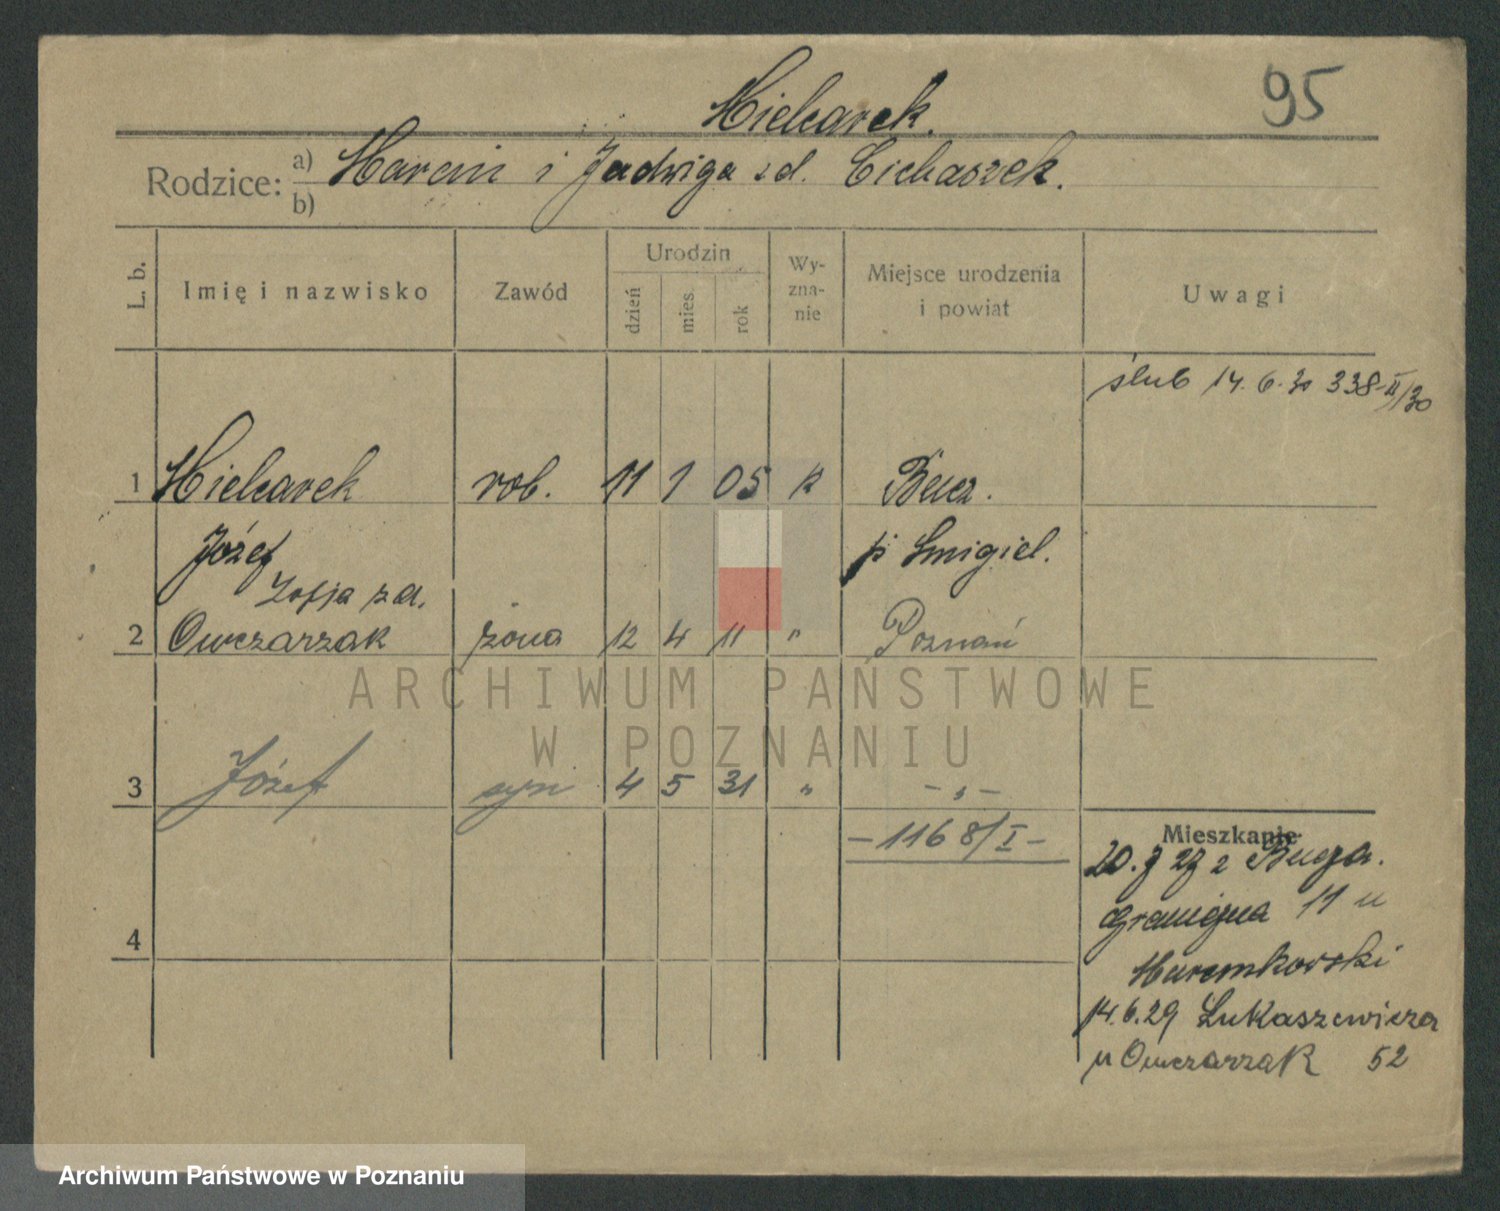 95
Mielcarek.
Rodzice: a) Marcin i Jadwiga z d. Cichaszek.
b)
L. b. Imię i nazwisko Zawód Urodzin dzień mies. rok Wy-zna-nie Miejsce urodzenia i powiat Uwagi
ślub 14. 6. 30 338-II/30
1 Mielcarek rob. 11 1 05 k
Józef p Smigiel.
Zofja z d.
2 Owczarzak żona 12 4 11 " Poznań
ARCHIWUM PAŃSTWOWE
W POZNANIU
3 Józef syn 4 5 31 " - „ -
- 1168/I -
Mieszkanie
20. 7 27 z
11 u
4
14.6.29 Łukaszewicza
u Owczarzak 52
Archiwum Państwowe w Poznaniu